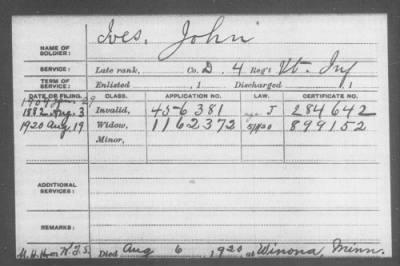 Ives, John
NAME OF SOLDIER:
SERVICE: Late rank, Co. D, 4 Reg't Vt. Inf
TERM OF SERVICE: Enlisted , 1 Discharged , 1
DATE OF FILING. CLASS. APPLICATION NO. LAW. CERTIFICATE NO.
1882 Aug. 3 Invalid, 456381 J 284642
1920 Aug. 19 Widow, 1162372 899152
Minor,
ADDITIONAL SERVICES:
REMARKS:
Died Aug 6, 1920, at Winona, Minn.